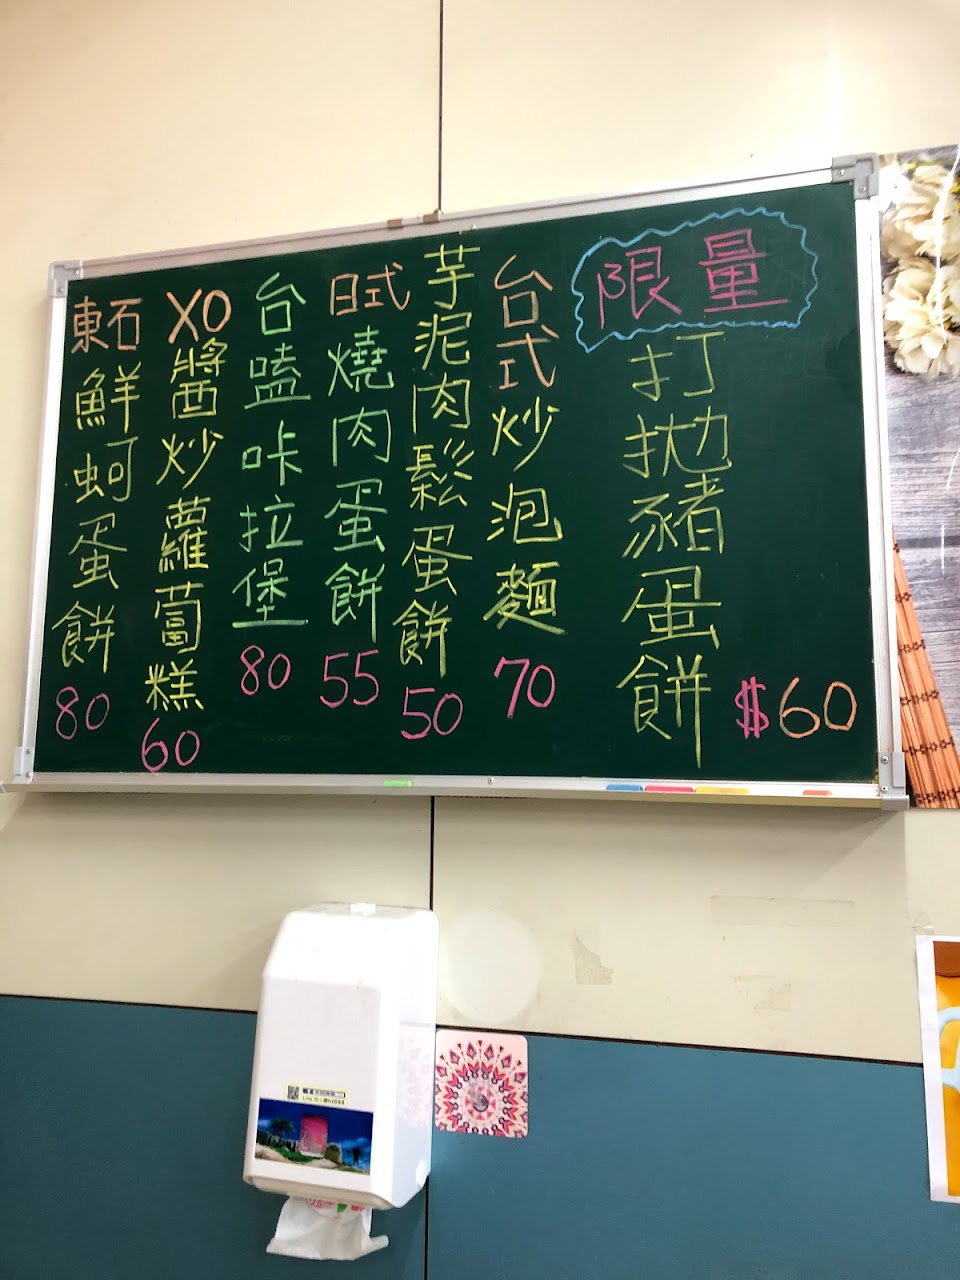 限量
打拋豬蛋餅
$60
台式炒泡麵
70
芋泥肉鬆蛋餅
50
日式燒肉蛋餅
55
台嗑咔拉堡
80
XO醬炒蘿蔔糕
60
東石鮮蚵蛋餅
80